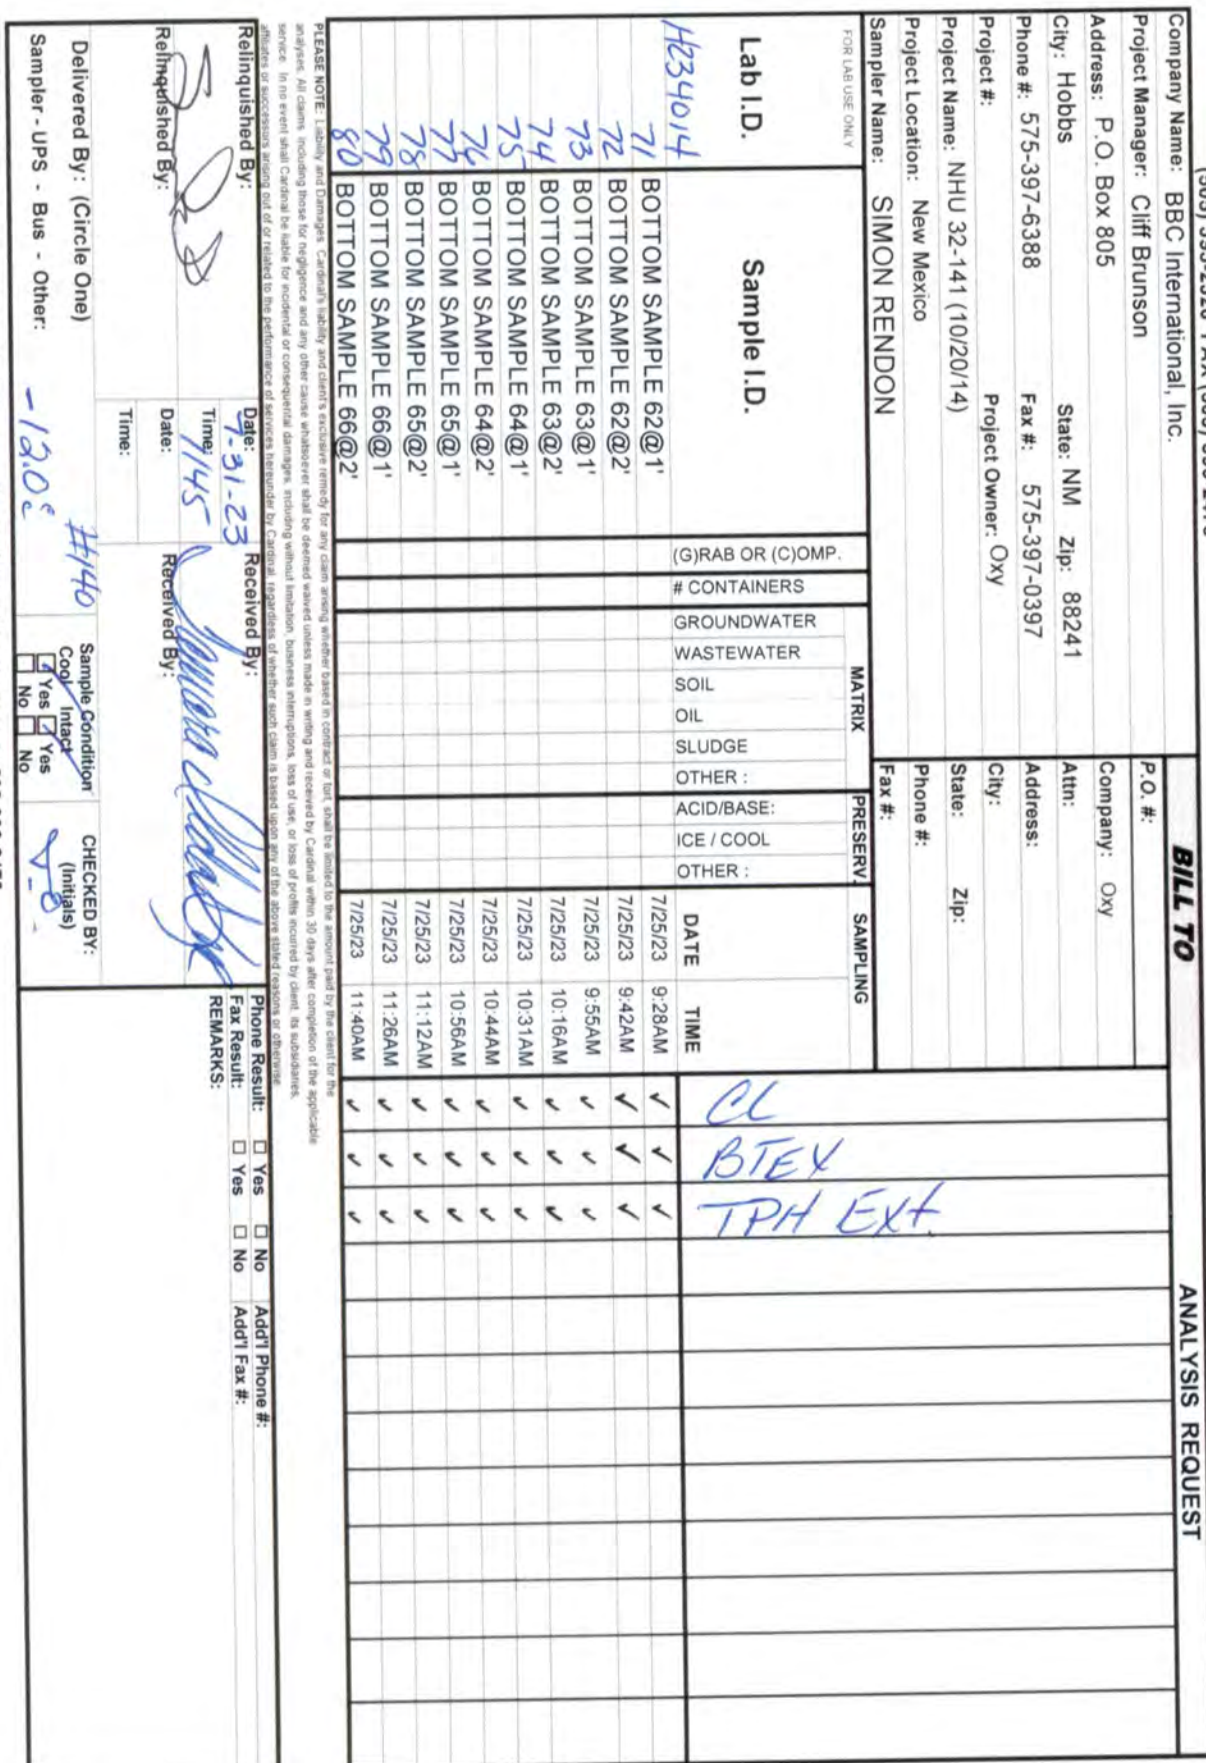 Company Name: BBC International, Inc.
BILL TO
ANALYSIS REQUEST
Project Manager: Cliff Brunson
P.O. #:
Address: P.O. Box 805
Company: Oxy
City: Hobbs State: NM Zip: 88241
Attn:
Phone #: 575-397-6388 Fax #: 575-397-0397
Address:
Project #: Project Owner: Oxy
City:
Project Name: NHU 32-141 (10/20/14)
State: Zip:
Project Location: New Mexico
Phone #:
Sampler Name: SIMON RENDON
Fax #:
FOR LAB USE ONLY
MATRIX PRESERV. SAMPLING
Lab I.D. Sample I.D. (G)RAB OR (C)OMP. # CONTAINERS GROUNDWATER WASTEWATER SOIL OIL SLUDGE OTHER : ACID/BASE: ICE / COOL OTHER : DATE TIME CL BTEX TPH Ext.
H234014
71 BOTTOM SAMPLE 62@1' 7/25/23 9:28AM ✓ ✓ ✓
72 BOTTOM SAMPLE 62@2' 7/25/23 9:42AM ✓ ✓ ✓
73 BOTTOM SAMPLE 63@1' 7/25/23 9:55AM ✓ ✓ ✓
74 BOTTOM SAMPLE 63@2' 7/25/23 10:16AM ✓ ✓ ✓
75 BOTTOM SAMPLE 64@1' 7/25/23 10:31AM ✓ ✓ ✓
76 BOTTOM SAMPLE 64@2' 7/25/23 10:44AM ✓ ✓ ✓
77 BOTTOM SAMPLE 65@1' 7/25/23 10:56AM ✓ ✓ ✓
78 BOTTOM SAMPLE 65@2' 7/25/23 11:12AM ✓ ✓ ✓
79 BOTTOM SAMPLE 66@1' 7/25/23 11:26AM ✓ ✓ ✓
80 BOTTOM SAMPLE 66@2' 7/25/23 11:40AM ✓ ✓ ✓
PLEASE NOTE: Liability and Damages. Cardinal's liability and client's exclusive remedy for any claim arising whether based in contract or tort, shall be limited to the amount paid by the client for the
analyses. All claims, including those for negligence and any other cause whatsoever shall be deemed waived unless made in writing and received by Cardinal within 30 days after completion of the applicable
service. In no event shall Cardinal be liable for incidental or consequental damages, including without limitation, business interruptions, loss of use, or loss of profits incurred by client, its subsidiaries,
affiliates or successors arising out of or related to the performance of services hereunder by Cardinal, regardless of whether such claim is based upon any of the above stated reasons or otherwise.
Relinquished By: Date: 7-31-23 Received By:
Time: 1145
Phone Result: □ Yes □ No Add'l Phone #:
Fax Result: □ Yes □ No Add'l Fax #:
REMARKS:
Relinquished By: Date: Received By:
Time:
Delivered By: (Circle One) #140 Sample Condition CHECKED BY:
Cool Intact (Initials)
Sampler - UPS - Bus - Other: -12.0c Yes Yes
No No